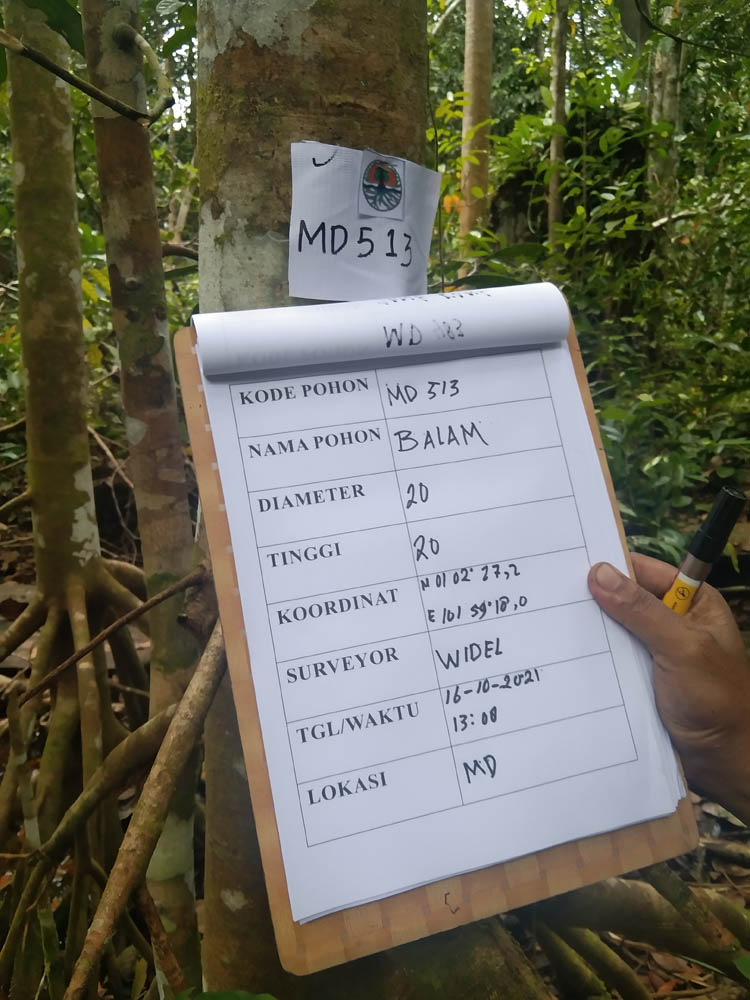 MD513
WD
KODE POHON MD 513
NAMA POHON BALAM
DIAMETER 20
TINGGI 20
KOORDINAT N 01 02' 27,2
E 101 59' 18,0
SURVEYOR WIDEL
TGL/WAKTU 16-10-2021
13:08
LOKASI MD